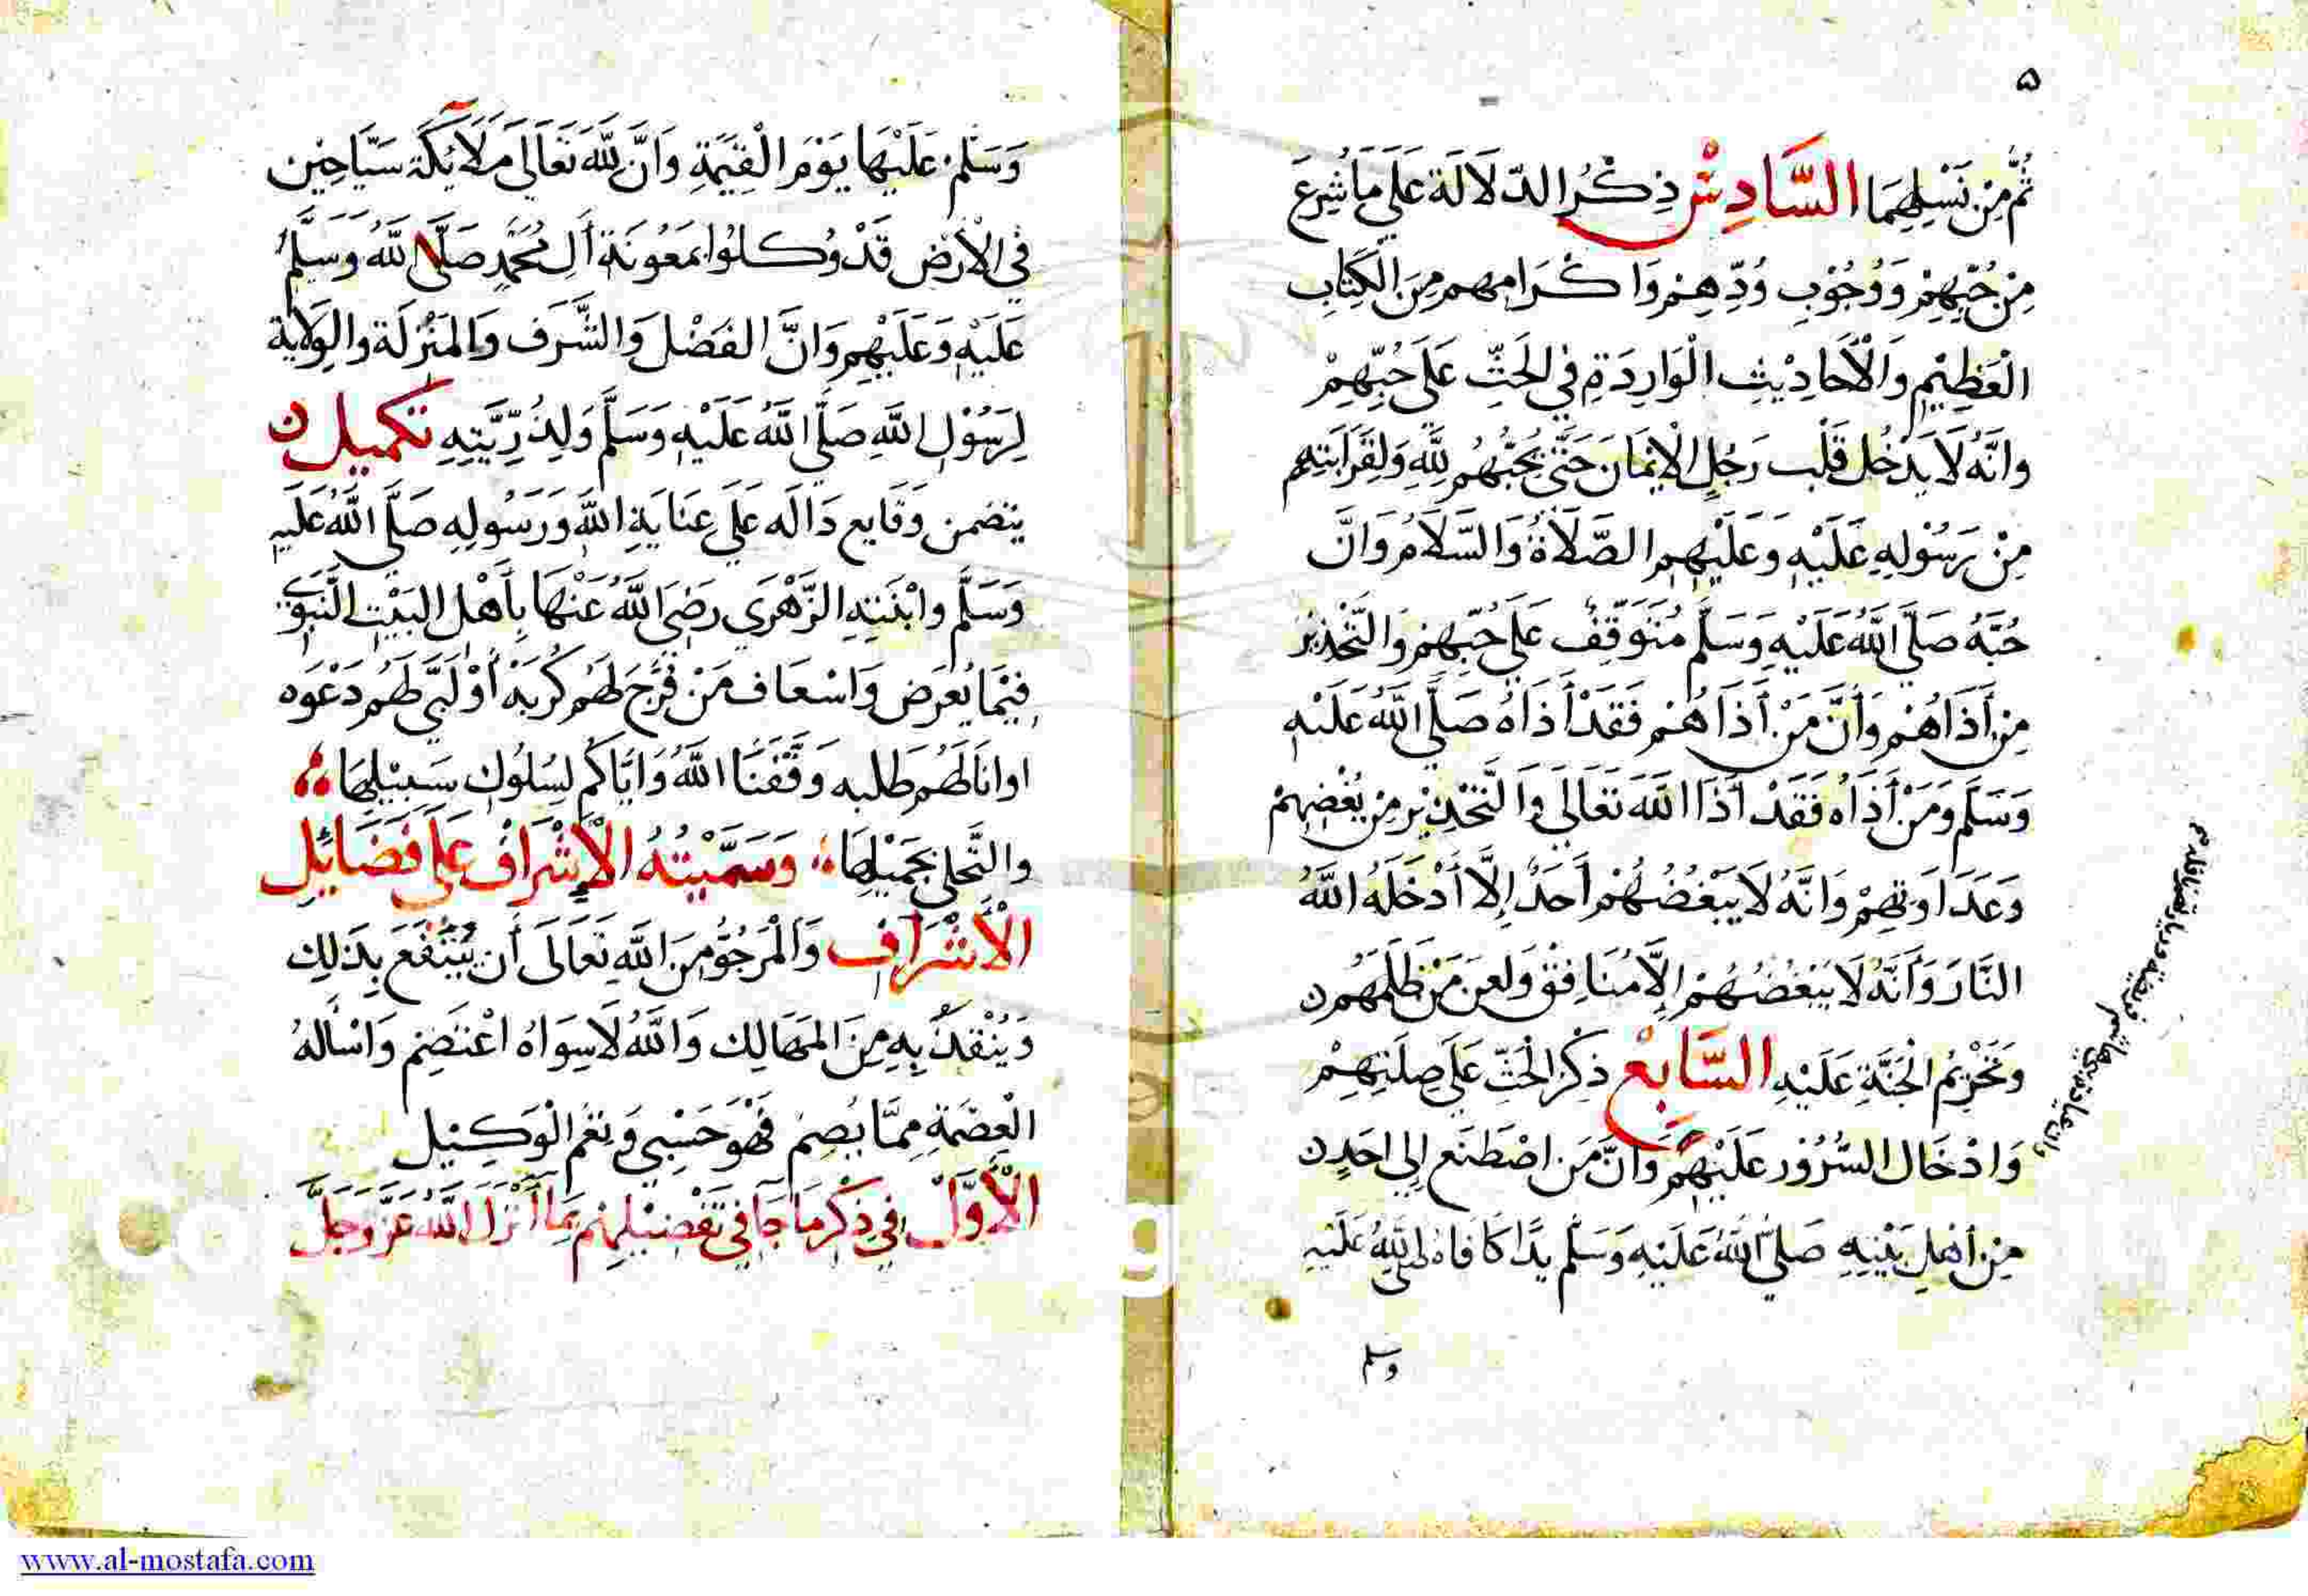 ٥
ثُمَّ مِنْ نَسْلِهِمَا السَّادِسُ ذِكْرُ الدّلَالَة عَلَى مَا شُرِعَ
مِنْ حُبِّهِمْ وَوُجُوْبِ وُدِّهِمْ وَاكْرَامِهِم مِنَ الْكِتَابِ
الْعَظِيْمِ وَالْأَحَادِيْثِ الْوَارِدَةِ فِي الحَثِّ عَلَى حُبِّهِمْ
وَانَّهُ لَا يَدْخُل قَلْب رَجُلٍ الْإِيْمَان حَتَّى يُحِبَّهُم لِلَّهِ وَلِقَرَابَتِهِم
مِنْ رَسُوْلِهِ عَلَيْهِ وَعَلَيْهِم الصَّلَاةُ وَالسَّلَامُ وَانَّ
حُبَّهُ صَلَّى اللَّهُ عَلَيْهِ وَسَلَّمَ مُتَوَقِّفٌ عَلَى حُبِّهِمْ وَالتَّحْذِيْرُ
مِنْ أَذَاهُمْ وَأَنَّ مَنْ أَذَاهُمْ فَقَدْ أَذَاهُ صَلَّى اللَّهُ عَلَيْهِ
وَسَلَّمَ وَمَنْ أَذَاه فَقَدْ أَذَا اللَّهَ تَعَالَى وَالتَّحْذِيْر مِنْ بُغْضِهِمْ
وَعَدَاوَتِهِمْ وَانَّهُ لَا يَبْغُضُهُمْ أَحَدٌ إِلَّا أَدْخَلَهُ اللَّهُ
النَّارَ وَأَنَّهُ لَا يَبْغُضُهُمْ إِلَّا مُنَافِقٌ وَلعن مَنْ ظَلَمَهُم
وَتَحْرِيْمُ الْجَنَّةِ عَلَيْهِ السَّابِعُ ذِكْرُ الحَثِّ عَلَى صِلَتِهِمْ
وَادْخَال السُّرُوْر عَلَيْهِمْ وَانَّ مَن اصْطَنَع إِلى احَدٍ
مِنْ أَهْلِ بَيْتِهِ صَلَّى اللَّهُ عَلَيْهِ وَسَلَّم يَدًا كَافَاهُ صَلَّى اللَّهُ عَلَيْهِ
وسلم
وَسَلَّمَ عَلَيْهَا يَوْمَ الْقِيمَةِ وَانَّ لِلَّهِ تَعَالَى مَلَآئِكَة سَيَّاحِيْن
فِي الْأَرْض قَدْ وُكِلُوا بِمَعُوْنَةِ أَلِ مُحَمَّدٍ صَلَّى اللَّهُ وَسَلَّمَ
عَلَيْهِ وَعَلَيْهِم وَانَّ الفَضْل وَالشَّرَف وَالمَنْزِلَة وَالوِلَايَة
لِرَسُوْلِ اللَّهِ صَلَّى اللَّهُ عَلَيْهِ وَسَلَّمَ وَلِذُرِّيَّتِهِ تكميل
يتضمن وَقَايع دَالَه عَلَى عِنَايَةِ اللَّهِ وَرَسُوْلِهِ صَلَّى اللَّهُ عَلَيْهِ
وَسَلَّمَ وابْنَتِهِ الزَّهْرَى رَضِيَ اللَّهُ عَنْهَا بِأَهْلِ البَيْتِ النَّبَوِي
فِيْمَا يُعْرَض وَاسْعَاف مَنْ فَرَّجَ لَهُم كُرْبَة أَوْ لَبَّى لَهُم دَعْوَه
اوانَالَهُم طلبه وَفَّقَنَا اللَّهُ وَايَّاكُم لِسُلُوْكِ سَبِيْلِهَا
والتَّحَلى بِجَمِيْلِهَا وَسَمَّيْتُهُ الْإِشْرَاف عَلَى فَضَائِلِ
الْأَشْرَافِ وَالْمَرْجُوُّ مِنَ اللَّهِ تَعَالَى أَن يُنْتَفَعَ بِذَلِك
وَيُنْقِذَ بِهِ مِنَ المَهَالِك وَاللَّهُ لَا سِوَاهُ اعْتَصِم وَاسْأَلُهُ
الْعِصْمَةِ مِمَّا يُصِم فَهْوَ حَسْبِي وَنِعْمَ الْوَكِيْل
الْأَوَّلُ فِي ذِكْرِ مَا جَآ فِي تَفْضِيْلِهِمْ مِمَّا أَنْزَلَ اللَّهُ عَزَّ وَجَلَّ
www.al-mostafa.com